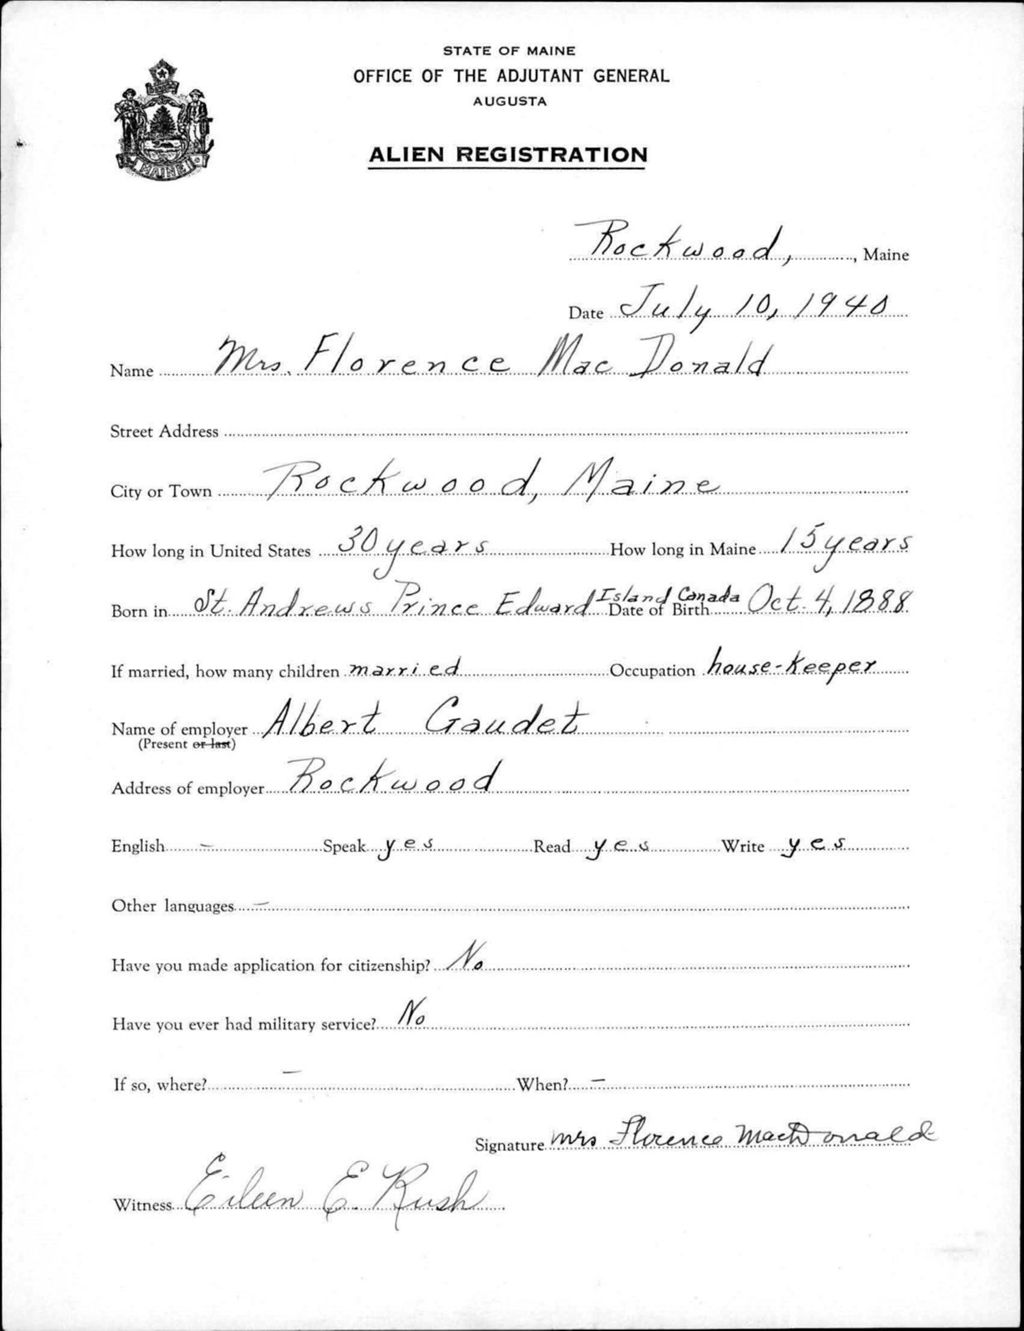 STATE OF MAINE
OFFICE OF THE ADJUTANT GENERAL
AUGUSTA
ALIEN REGISTRATION
MAINE
Rockwood, , Maine
Date July 10, 1940
Name Mrs. Florence Mac Donald
Street Address
City or Town Rockwood, Maine
How long in United States 30 years How long in Maine 15 years
Born in St. Andrews Prince Edward Island Canada Date of Birth Oct. 4, 1888.
If married, how many children married Occupation house-keeper
Name of employer Albert Gaudet
(Present or last)
Address of employer Rockwood
English - Speak yes Read yes Write yes
Other languages -
Have you made application for citizenship? No
Have you ever had military service? No
If so, where? - When? -
Signature Mrs Florence MacDonald
Witness Eileen E. Rush